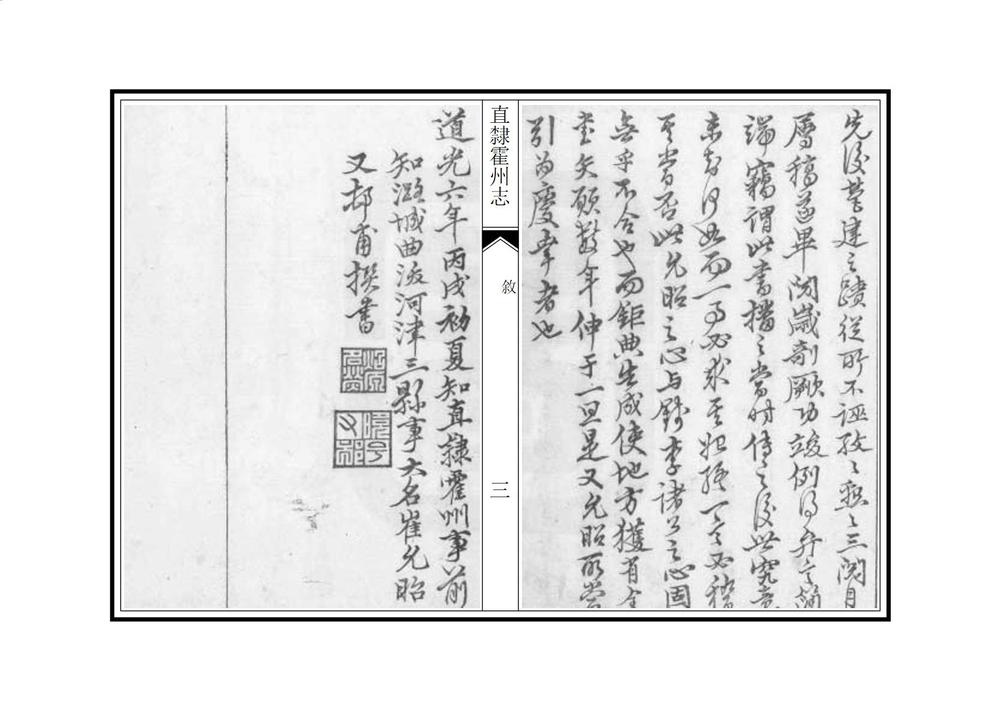 先後營建之蹟從所不誣孜孜
三閱月
屬稿甫畢閱歲剞劂功竣例得弁言
端竊謂此書播之當時傳之後世究竟
未知何如而一事必求其根據一言必稽
其當否此允昭之心與錢李諸公之心固
無乎不合也而鉅典告成使地方獲有全
書矣願數年伸于一旦是又允昭所當
引為慶幸者也
直隸霍州志
敘
三
道光六年丙戌初夏知直隸霍州事前
知潞城曲沃河津三縣事大名崔允昭
又邨甫撰書